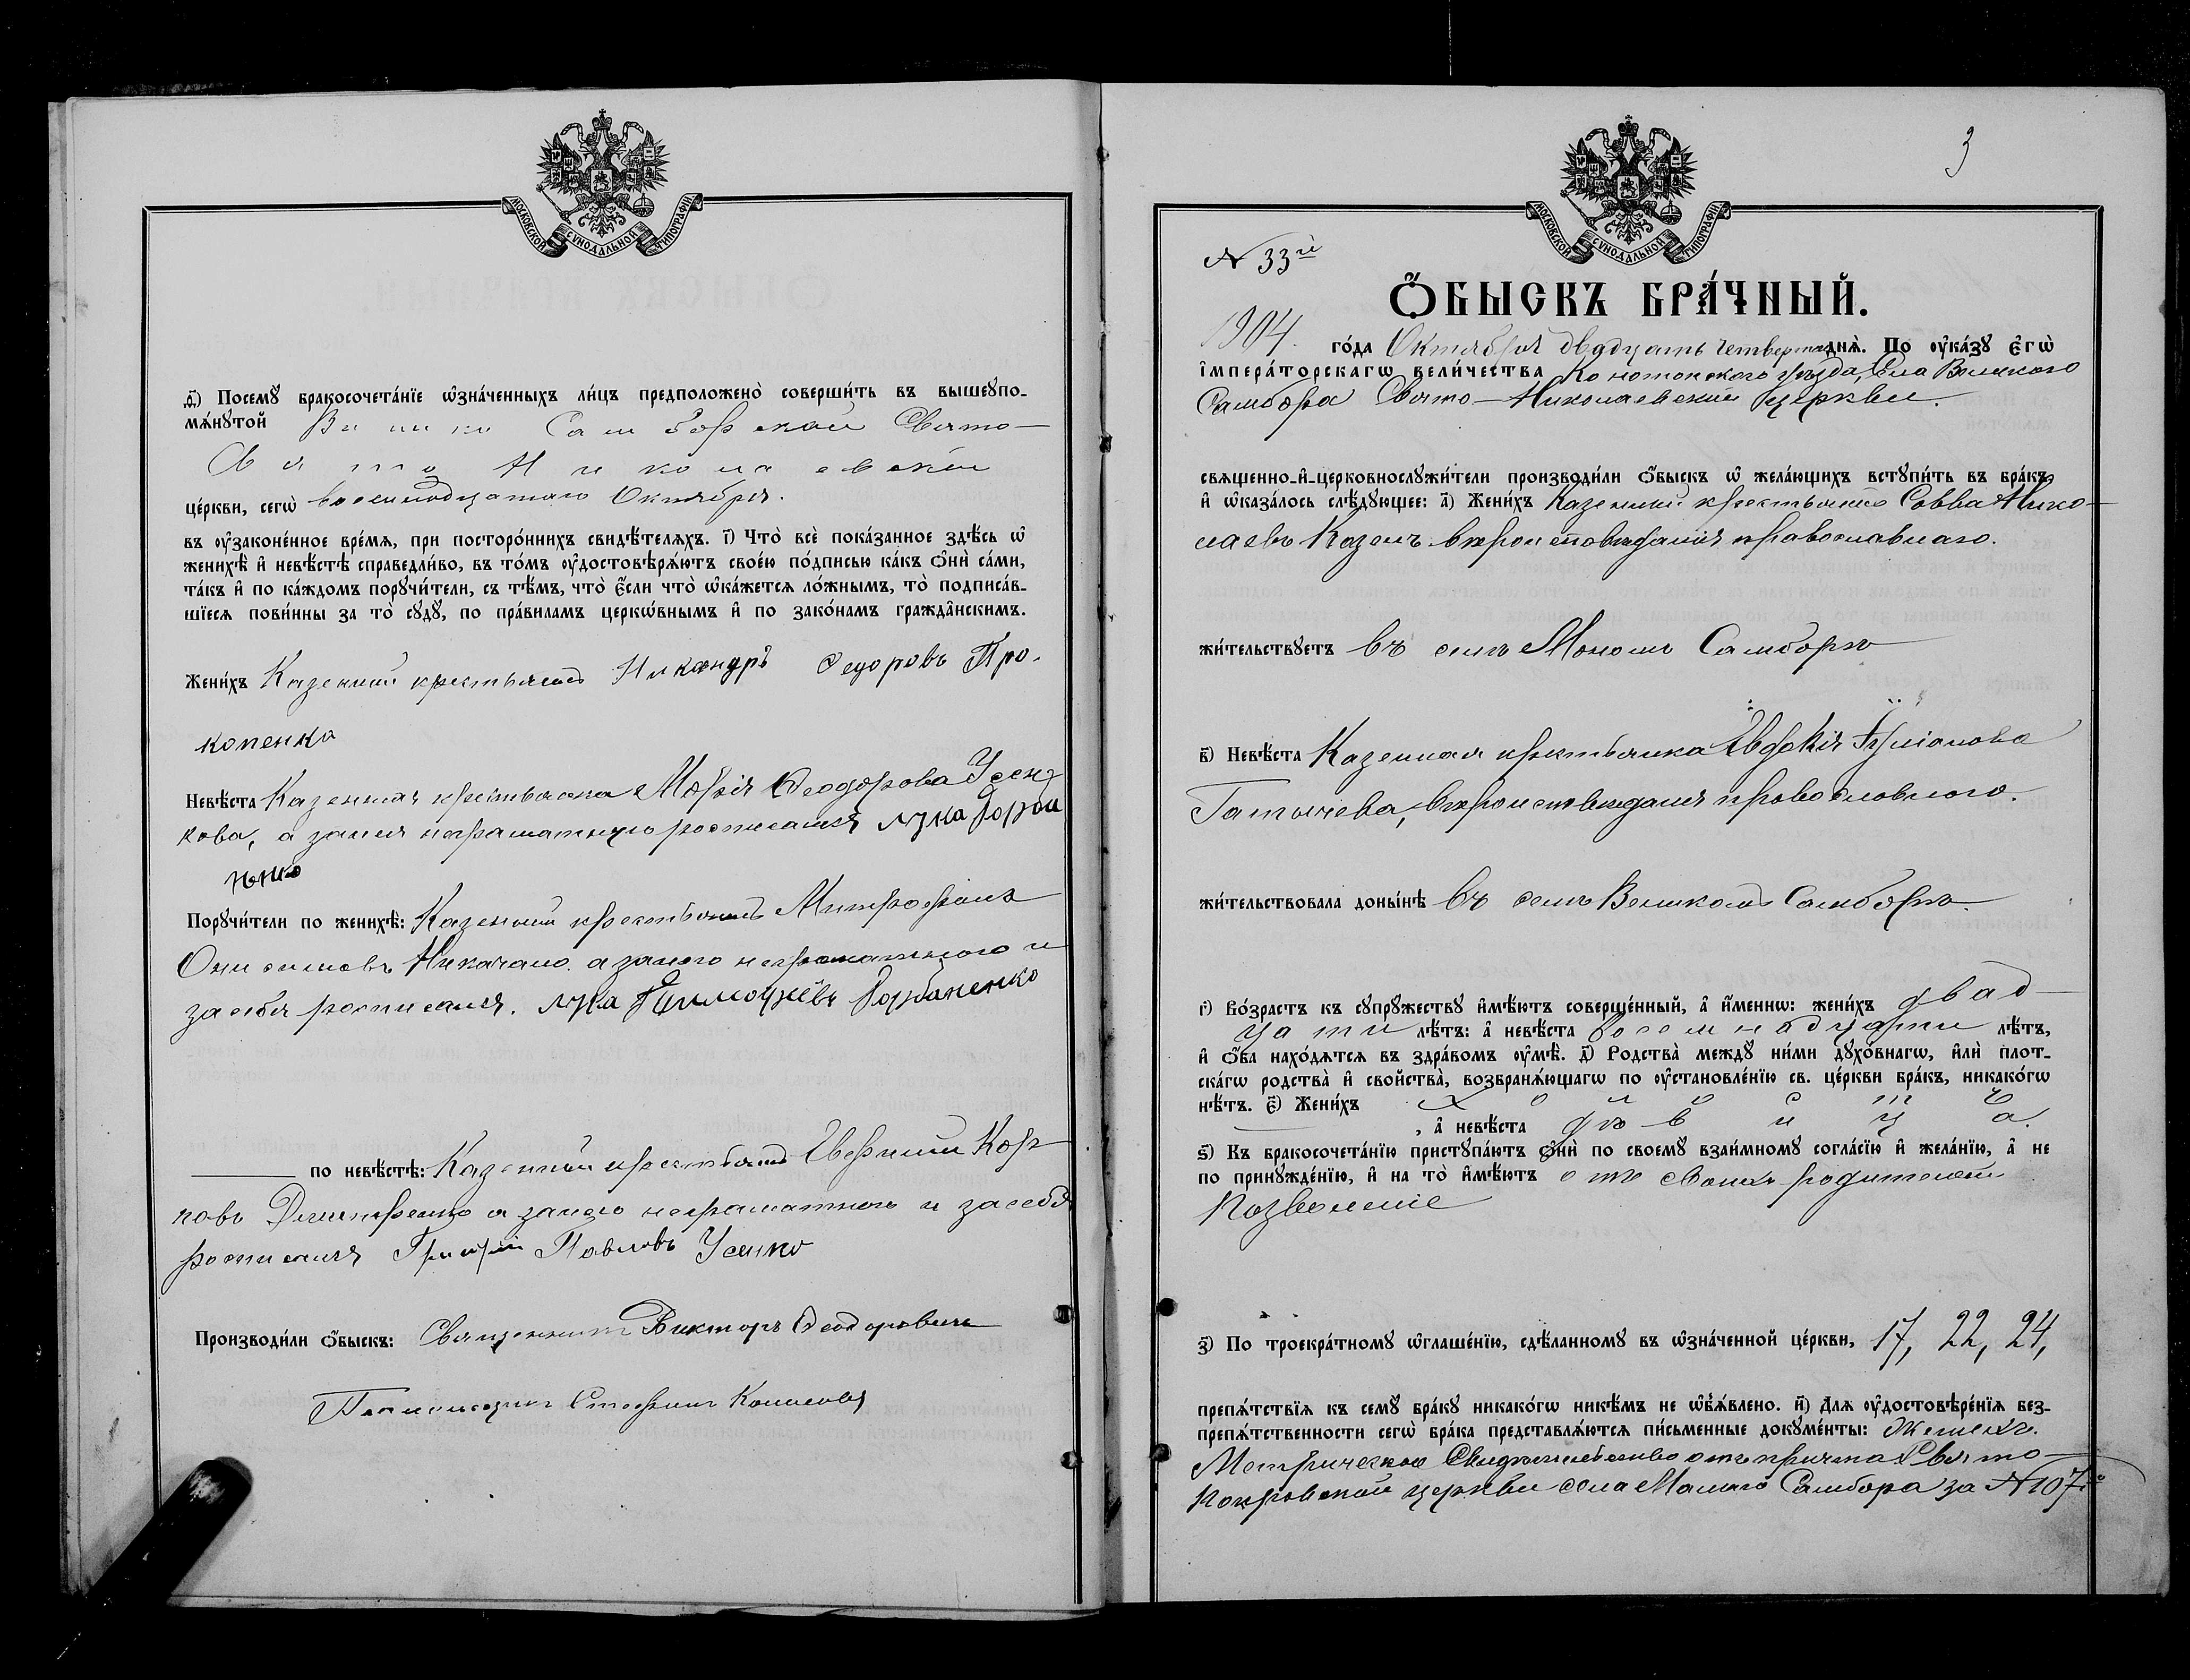 МОСКОВСКОЙ СѴНОДАЛЬНОЙ ТИПОГРАФІИ
д҃і) Посемꙋ бракосочета́нїе ѡ҆зна́ченныхъ ли́цъ предположено̀ соверши́ть въ вышеꙋпо-
мѧ́нꙋтой Велико Самборской Свято-
Свято Николаевской
це́ркви, сегѡ̀ восемнодцатаго Октября.
въ ᲂу҆зако́ненное вре́мѧ, при посторо́ннихъ свидѣ́телѧхъ. і҃) Что̀ всѐ пока́занное здѣ́сь ѡ҆
женихѣ̀ и҆ невѣ́стѣ справедли́во, въ то́мъ ᲂу҆достовѣрѧ́ютъ свое́ю по́дписью ка́къ ѻ҆нѝ са́ми,
та́къ и҆ по ка́ждомъ порꙋчи́тели, съ тѣ́мъ, что̀ є҆́сли что̀ ѡ҆ка́жется ло́жнымъ, то̀ подписа́в-
шїеся пови́нны за то̀ сꙋдꙋ̀, по пра́виламъ церкѡ́внымъ и҆ по зако́намъ гражда̂нскимъ.
Жени́хъ Казенный крестьянинъ Никандръ Федоровъ Про-
копенко
Невѣ́ста Казенная крестьянка Марія Феодорова Усен-
кова, а за нея неграмотную росписался Лука Горба
ненко
Порꙋчи́тели по женихѣ̀: Казенный крестьянинъ Митрофанъ
Онисимовъ а за него неграмотного и
за себя росписался. Лука Тимофѣевъ Горбаненко
по невѣ́стѣ: Казенный крестьянинъ Кар
повъ Дмитренко а за него неграмотного и за себя
росписался Григорій Павловъ Усенко
Производи́ли ѻ҆́быскъ: Священникъ Викторъ Феодоровичъ
Псаломщикъ Стефанъ
3
МОСКОВСКОЙ СѴНОДАЛЬНОЙ ТИПОГРАФІИ
№ 33й
Ѻ҆́БЫСКЪ БРА́ЧНЫЙ.
1904. го́да Октября двадцать четвертаго днѧ̀. По ᲂу҆ка́зꙋ є҆гѡ̀
і҆мпера́торскагѡ вели́чества Конотопского уѣзда, села Великого
Самбора Свято-Николаевской церкви.
свѧщенно-и҆-церковнослꙋжи́тели производи́ли ѻ҆́быскъ ѡ҆ жела́ющихъ встꙋпи́ть въ бра́къ,
и҆ ѡ҆каза́лось слѣ́дꙋющее: а҃) Жени́хъ Казенный крестьянинъ Савва Нико-
лаевъ Козелъ вѣроисповѣданія православнаго.
жи́тельствꙋетъ въ селѣ Маломъ Самборѣ
в҃) Невѣ́ста Казенная крестьянка Евдокія
вѣроисповѣданія православного.
жи́тельствовала доны́нѣ въ селѣ Великомъ Самборѣ.
г҃) Во́зрастъ къ сꙋпрꙋ́жествꙋ и҆мѣ́ютъ соверше́нный, а҆ и҆́меннѡ: жени́хъ двад-
цати лѣ́тъ: а҆ невѣ́ста восемнадцати лѣ́тъ,
и҆ ѻ҆́ба нахо́дѧтсѧ въ здра́вомъ ᲂу҆мѣ̀. д҃) Родства̀ междꙋ̀ ни́ми дꙋхо́внагѡ, и҆лѝ плот-
ска́гѡ родства̀ и҆ сво́йства̀, возбранѧ́ющагѡ по ᲂу҆становле́нїю св. це́ркви бра́къ, никако́гѡ
нѣ́тъ. є҃) Жени́хъ холостъ
, а҆ невѣ́ста дѣвица.
ѕ҃) Къ бракосочета́нїю пристꙋпа́ютъ ѻ҆нѝ по своемꙋ̀ взаи́мномꙋ согла́сїю и҆ жела́нїю, а҆ не
по принꙋжде́нїю, и҆ на то̀ и҆мѣ́ютъ отъ своихъ родителей
позволеніе
з҃) По троекра́тномꙋ ѡ҆глаше́нїю, сдѣ́ланномꙋ въ ѡ҆зна́ченной це́ркви, 17, 22, 24,
препѧ́тствїѧ къ семꙋ̀ бра́кꙋ никако́гѡ никѣ́мъ не ѡ҆б̾ѧ́влено. и҃) Длѧ ᲂу҆достовѣре́нїѧ без-
препѧ́тственности сегѡ̀ бра́ка представлѧ́ютсѧ пи́сьменные докꙋме́нты: Женихъ.
Метрическое Свидѣтельство отъ причта Свято-
Покровской церкви села Малаго Самбора за № 107й